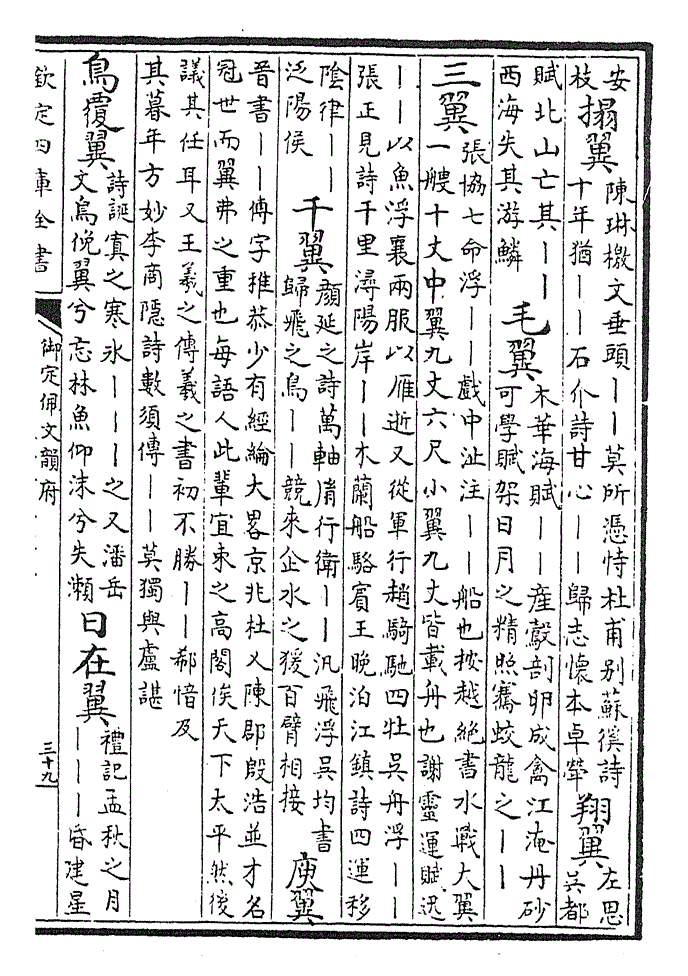 安
枝
搨翼
陳琳檄文垂頭｜｜莫所憑恃杜甫别蘇徯詩
十年猶｜｜石介詩甘心｜｜歸志懷本卓犖
翔翼
左思
吳都
賦北山亡其｜｜
西海失其游鱗
毛翼
木華海賦｜｜產鷇剖卵成禽江淹丹砂
可學賦架日月之精照騫蛟龍之｜｜
三翼
張協七命浮｜｜戲中沚注｜｜船也按越絶書水戰大翼
一艘十丈中翼九丈六尺小翼九丈皆載舟也謝靈運賦迅
｜｜以魚浮襄兩服以雁逝又從軍行趙騎馳四牡吳舟浮｜｜
張正見詩千里潯陽岸｜｜木蘭船駱賓王晚泊江鎮詩四運移
陰律｜｜
泛陽侯
千翼
顏延之詩萬軸胤行衛｜｜汎飛浮吳均書
歸飛之鳥｜｜競來企水之猨百臂相接
庾翼
晉書｜｜傳字稚恭少有經綸大畧京兆杜乂陳郡殷浩並才名
冠世而翼弗之重也每語人此輩宜束之高閣俟天下太平然後
議其任耳又王羲之傳羲之書初不勝｜｜郗愔及
其暮年方妙李商隱詩數須傳｜｜莫獨與盧諶
鳥覆翼
詩誕寘之寒氷｜｜｜之又潘岳
文鳥俛翼兮忘林魚仰沫兮失瀨
日在翼
禮記孟秋之月
｜｜｜昏建星
欽定四庫全書
御定佩文韻府
三十九